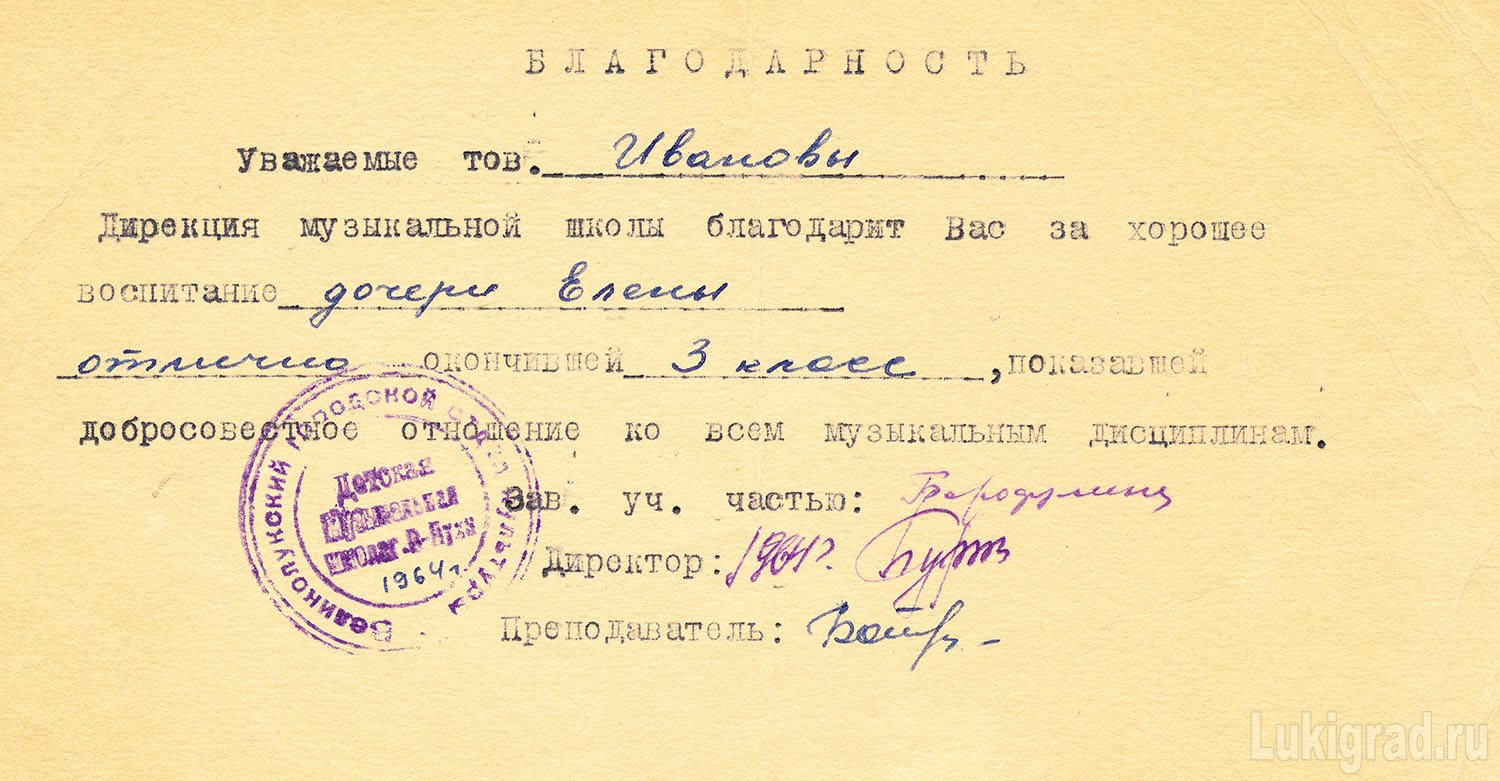 БЛАГОДАРНОСТЬ
Уважаемые тов. Ивановы
Дирекция музыкальной школы благодарит Вас за хорошее
воспитание дочери Елены
отлично окончившей 3 класс, показавшей
добросовестное отношение ко всем музыкальным дисциплинам.
Зав. уч. частью: Бородулина
Директор: 1964 г.
Преподаватель:
Великолукский городской отдел культуры
Детская
музыкальная
школа г. В-Луки
1964 г.
Lukigrad.ru